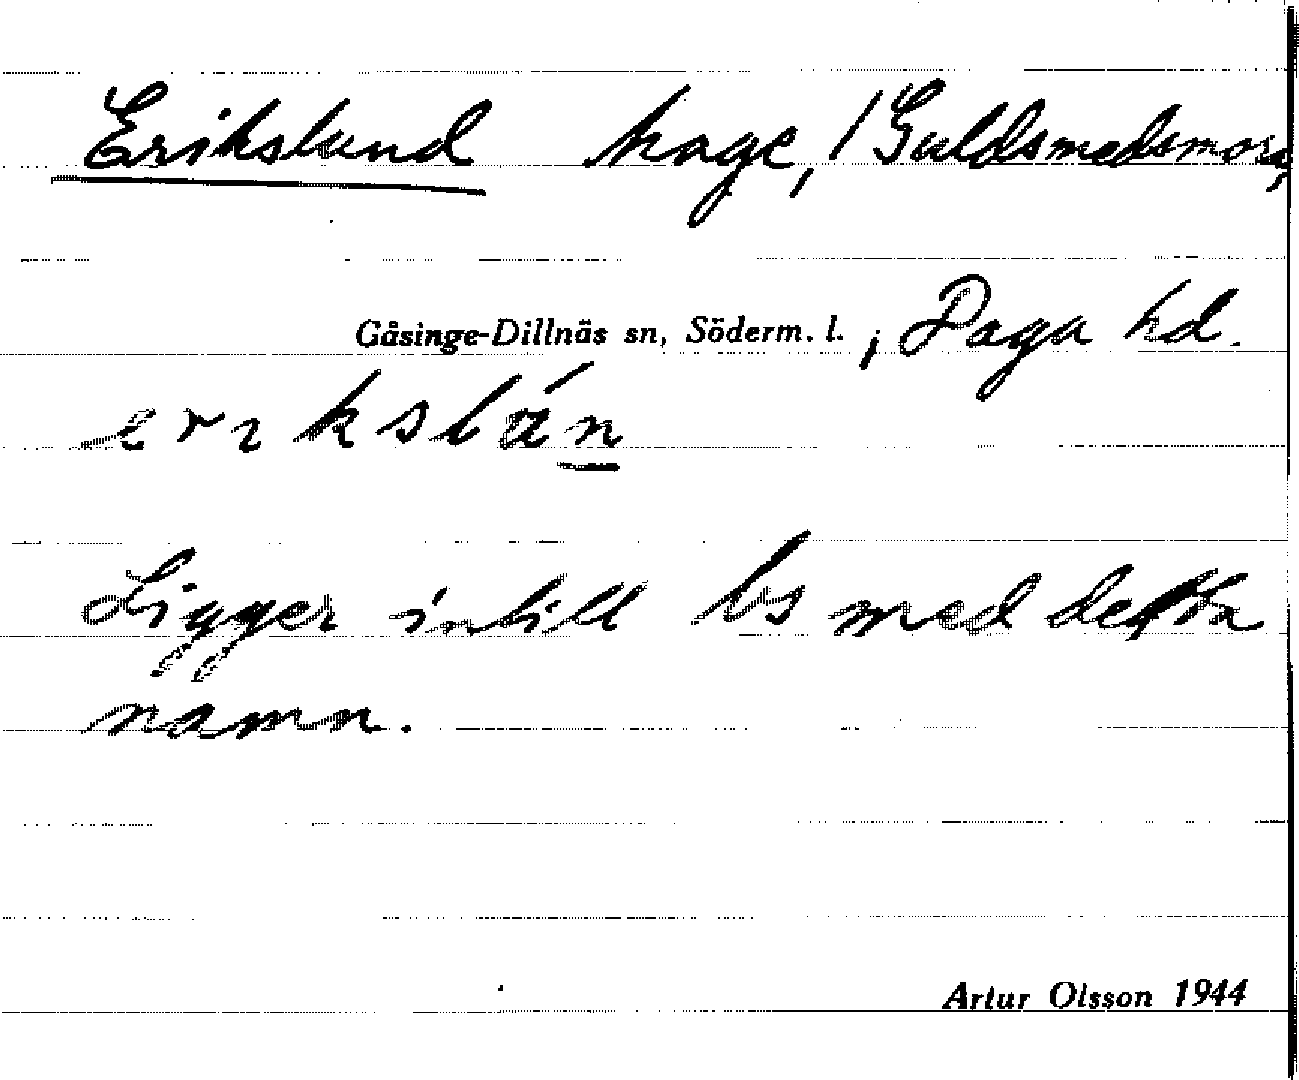 Erikslund hage, /Guldsmedsmora,
Gåsinge-Dillnäs sn, Söderm. l. ; Daga hd.
erikslán
Ligger intill bs med detta
namn.
Artur Olsson 1944